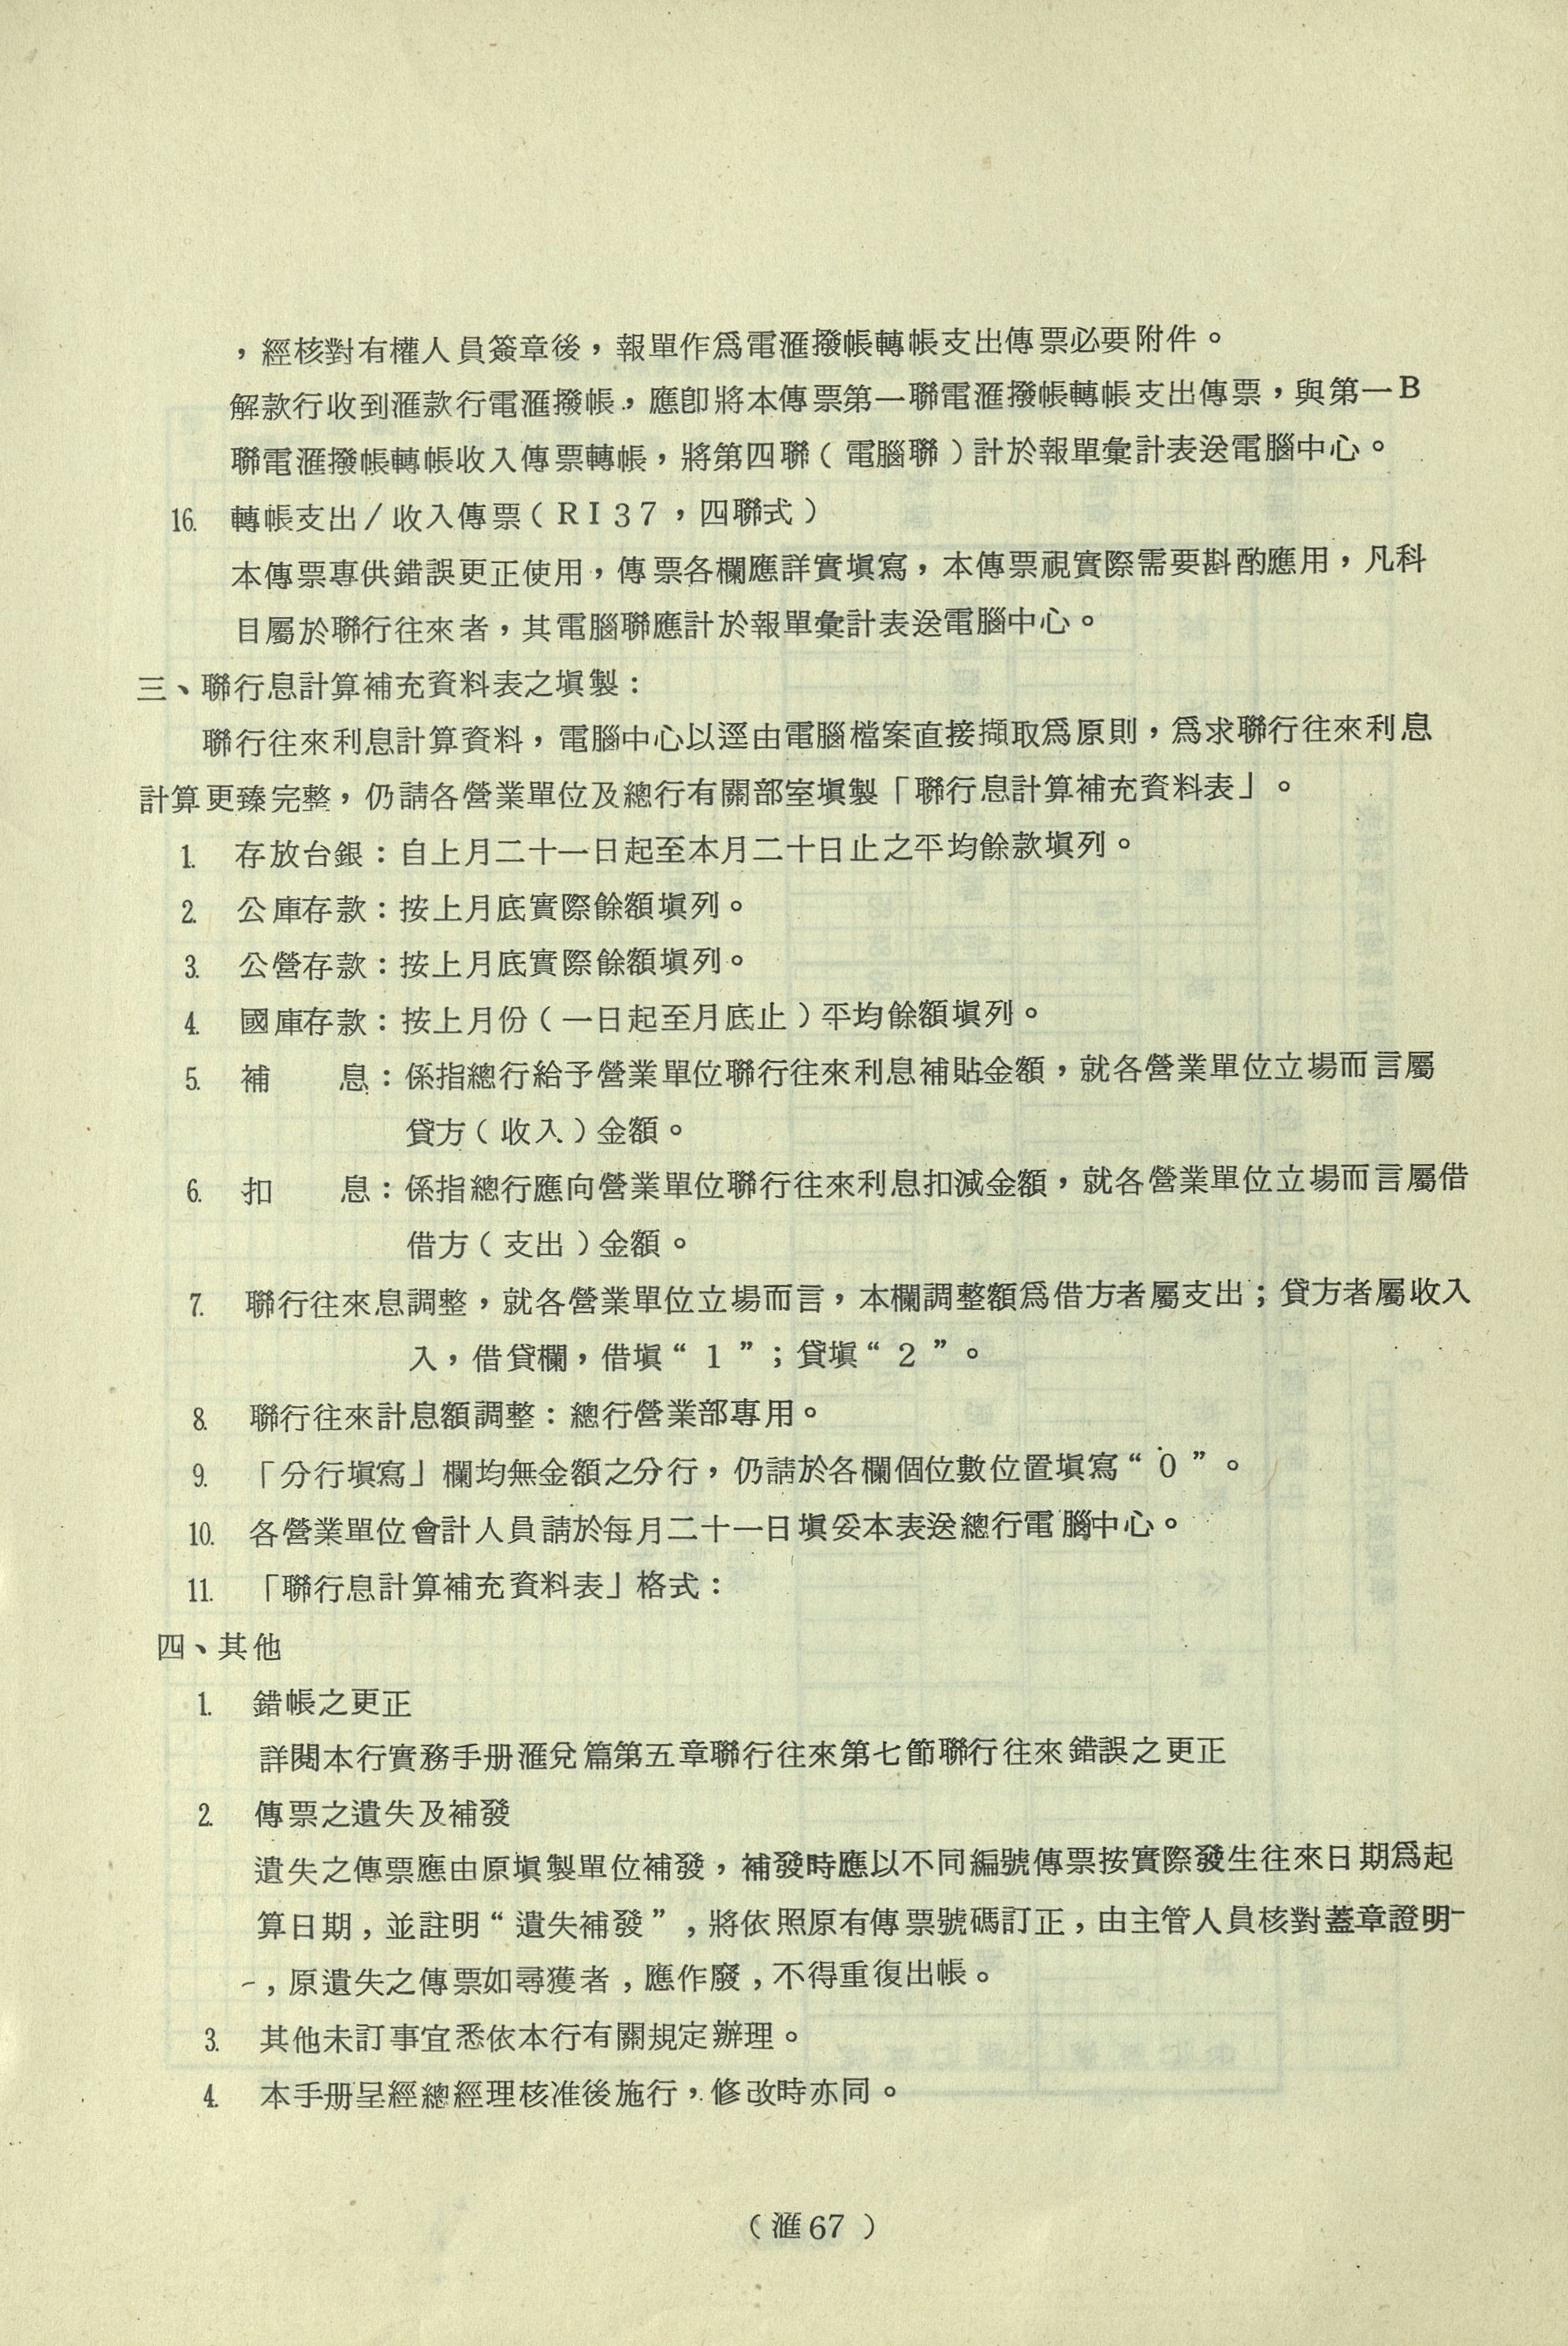 ，經核對有權人員簽章後，報單作爲電滙撥帳轉帳支出傳票必要附件。
解款行收到滙款行電滙撥帳，應卽將本傳票第一聯電滙撥帳轉帳支出傳票，與第一B
聯電滙撥帳轉帳收入傳票轉帳，將第四聯（電腦聯）計於報單彙計表送電腦中心。
16. 轉帳支出/收入傳票（RI37，四聯式）
本傳票專供錯誤更正使用，傳票各欄應詳實塡寫，本傳票視實際需要斟酌應用，凡科
目屬於聯行往來者，其電腦聯應計於報單彙計表送電腦中心。
三、聯行息計算補充資料表之塡製：
聯行往來利息計算資料，電腦中心以逕由電腦檔案直接擷取爲原則，爲求聯行往來利息
計算更臻完整，仍請各營業單位及總行有關部室塡製「聯行息計算補充資料表」。
1. 存放台銀：自上月二十一日起至本月二十日止之平均餘款塡列。
2. 公庫存款：按上月底實際餘額塡列。
3. 公營存款：按上月底實際餘額塡列。
4. 國庫存款：按上月份（一日起至月底止）平均餘額塡列。
5. 補　　息：係指總行給予營業單位聯行往來利息補貼金額，就各營業單位立場而言屬
貸方（收入）金額。
6. 扣　　息：係指總行應向營業單位聯行往來利息扣減金額，就各營業單位立場而言屬借
借方（支出）金額。
7. 聯行往來息調整，就各營業單位立場而言，本欄調整額爲借方者屬支出；貸方者屬收入
入，借貸欄，借塡“1”；貸塡“2”。
8. 聯行往來計息額調整：總行營業部專用。
9. 「分行塡寫」欄均無金額之分行，仍請於各欄個位數位置塡寫“0”。
10. 各營業單位會計人員請於每月二十一日塡妥本表送總行電腦中心。
11. 「聯行息計算補充資料表」格式：
四、其他
1. 錯帳之更正
詳閱本行實務手册滙兌篇第五章聯行往來第七節聯行往來錯誤之更正
2. 傳票之遺失及補發
遺失之傳票應由原塡製單位補發，補發時應以不同編號傳票按實際發生往來日期爲起
算日期，並註明“遺失補發”，將依照原有傳票號碼訂正，由主管人員核對蓋章證明
，原遺失之傳票如尋獲者，應作廢，不得重復出帳。
3. 其他未訂事宜悉依本行有關規定辦理。
4. 本手册呈經總經理核准後施行，修改時亦同。
（滙67）